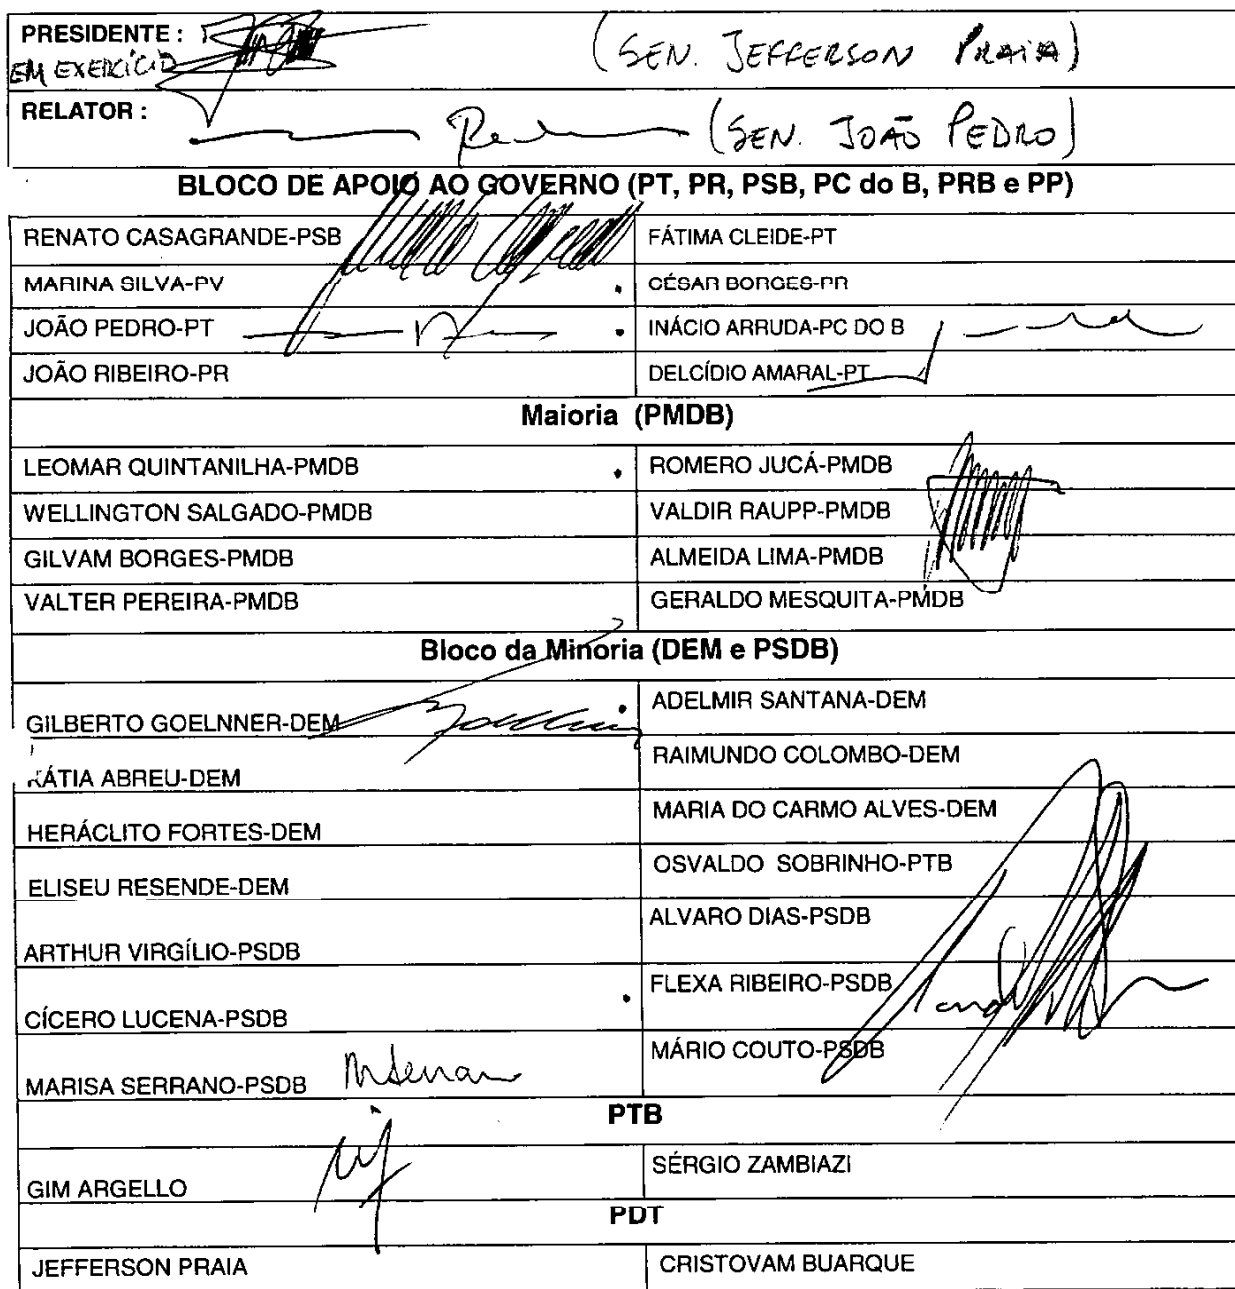 PRESIDENTE : (SEN. JEFFERSON PRAIA)
EM EXERCÍCIO
RELATOR : (SEN. JOÃO PEDRO)
BLOCO DE APOIO AO GOVERNO (PT, PR, PSB, PC do B, PRB e PP)
RENATO CASAGRANDE-PSB FÁTIMA CLEIDE-PT
MARINA SILVA-PV CÉSAR BORGES-PR
JOÃO PEDRO-PT INÁCIO ARRUDA-PC DO B
JOÃO RIBEIRO-PR DELCÍDIO AMARAL-PT
Maioria (PMDB)
LEOMAR QUINTANILHA-PMDB ROMERO JUCÁ-PMDB
WELLINGTON SALGADO-PMDB VALDIR RAUPP-PMDB
GILVAM BORGES-PMDB ALMEIDA LIMA-PMDB
VALTER PEREIRA-PMDB GERALDO MESQUITA-PMDB
Bloco da Minoria (DEM e PSDB)
GILBERTO GOELNNER-DEM ADELMIR SANTANA-DEM
KÁTIA ABREU-DEM RAIMUNDO COLOMBO-DEM
HERÁCLITO FORTES-DEM MARIA DO CARMO ALVES-DEM
ELISEU RESENDE-DEM OSVALDO SOBRINHO-PTB
ARTHUR VIRGÍLIO-PSDB ALVARO DIAS-PSDB
CÍCERO LUCENA-PSDB FLEXA RIBEIRO-PSDB
MARISA SERRANO-PSDB MÁRIO COUTO-PSDB
PTB
GIM ARGELLO SÉRGIO ZAMBIAZI
PDT
JEFFERSON PRAIA CRISTOVAM BUARQUE